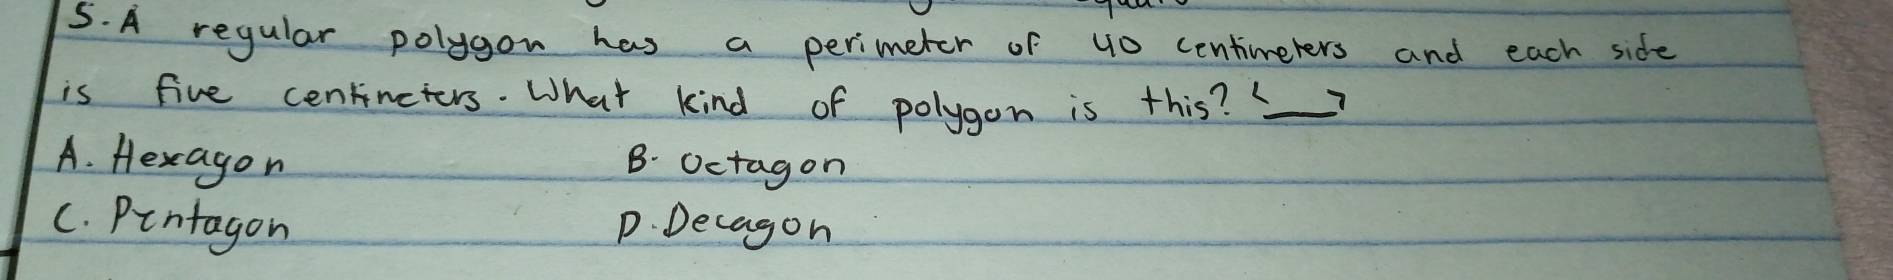 5. A regular polygon has a perimeter of 40 centimeters and each side
is five centimeters. What kind of polygon is this? <__>
A. Hexagon B. Octagon
C. Pentagon D. Decagon